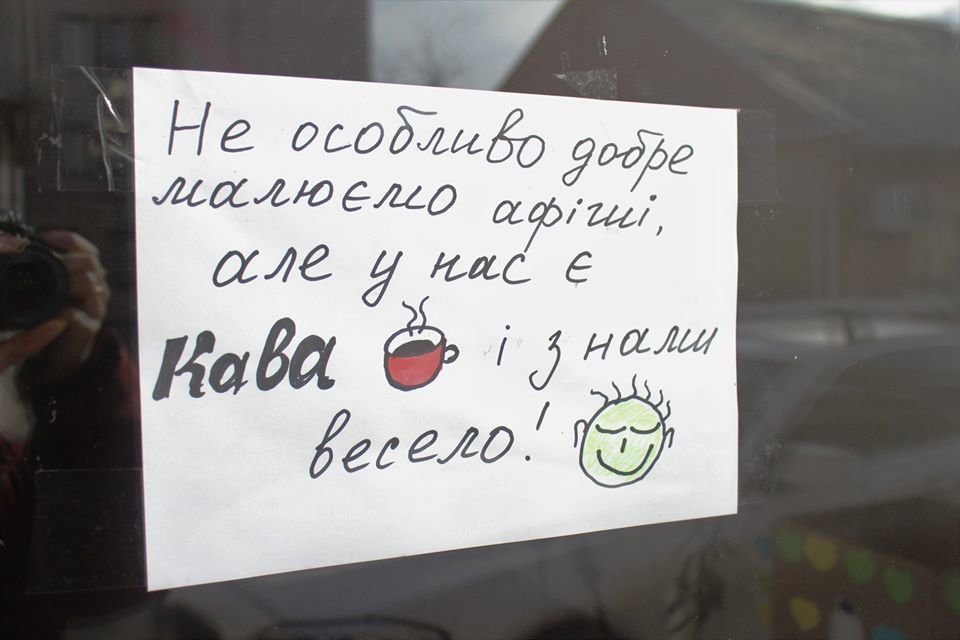 Не особливо добре
малюємо афіші,
але у нас є
Кава і з нами
весело!